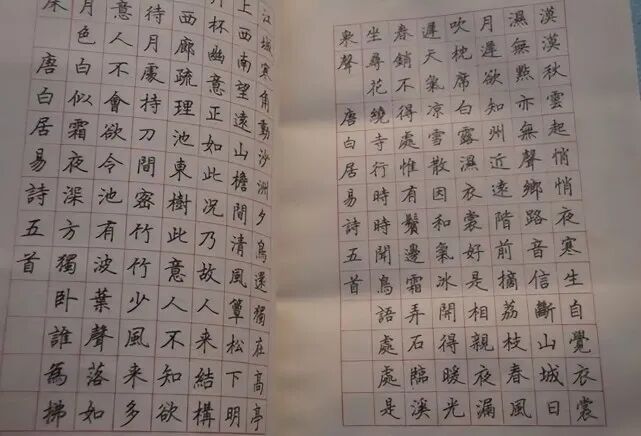 漠漠秋雲起悄悄夜寒生自覺衣裳
濕無點亦無聲鄉路音信斷山城日
月遲欲知州近遠階前摘荔枝春風
吹枕席白露濕衣裳好是相親夜漏
遲天氣凉雪散因和氣冰開得暖光
春銷不得處惟有鬢邊霜弄石臨溪
坐尋花繞寺行時時聞鳥語處處是
泉聲 唐白居易詩五首
江城寒角動沙洲夕鳥還獨在高亭
上西南望遠山檐間清風簟松下明
杯幽意正如此况乃故人来結構
西廊疏理池東樹此意人不知欲
待月處持刀間密竹竹少風来多
意人不會欲令池有波葉聲落如
月色白似霜夜深方獨卧誰為拂
床 唐白居易詩五首